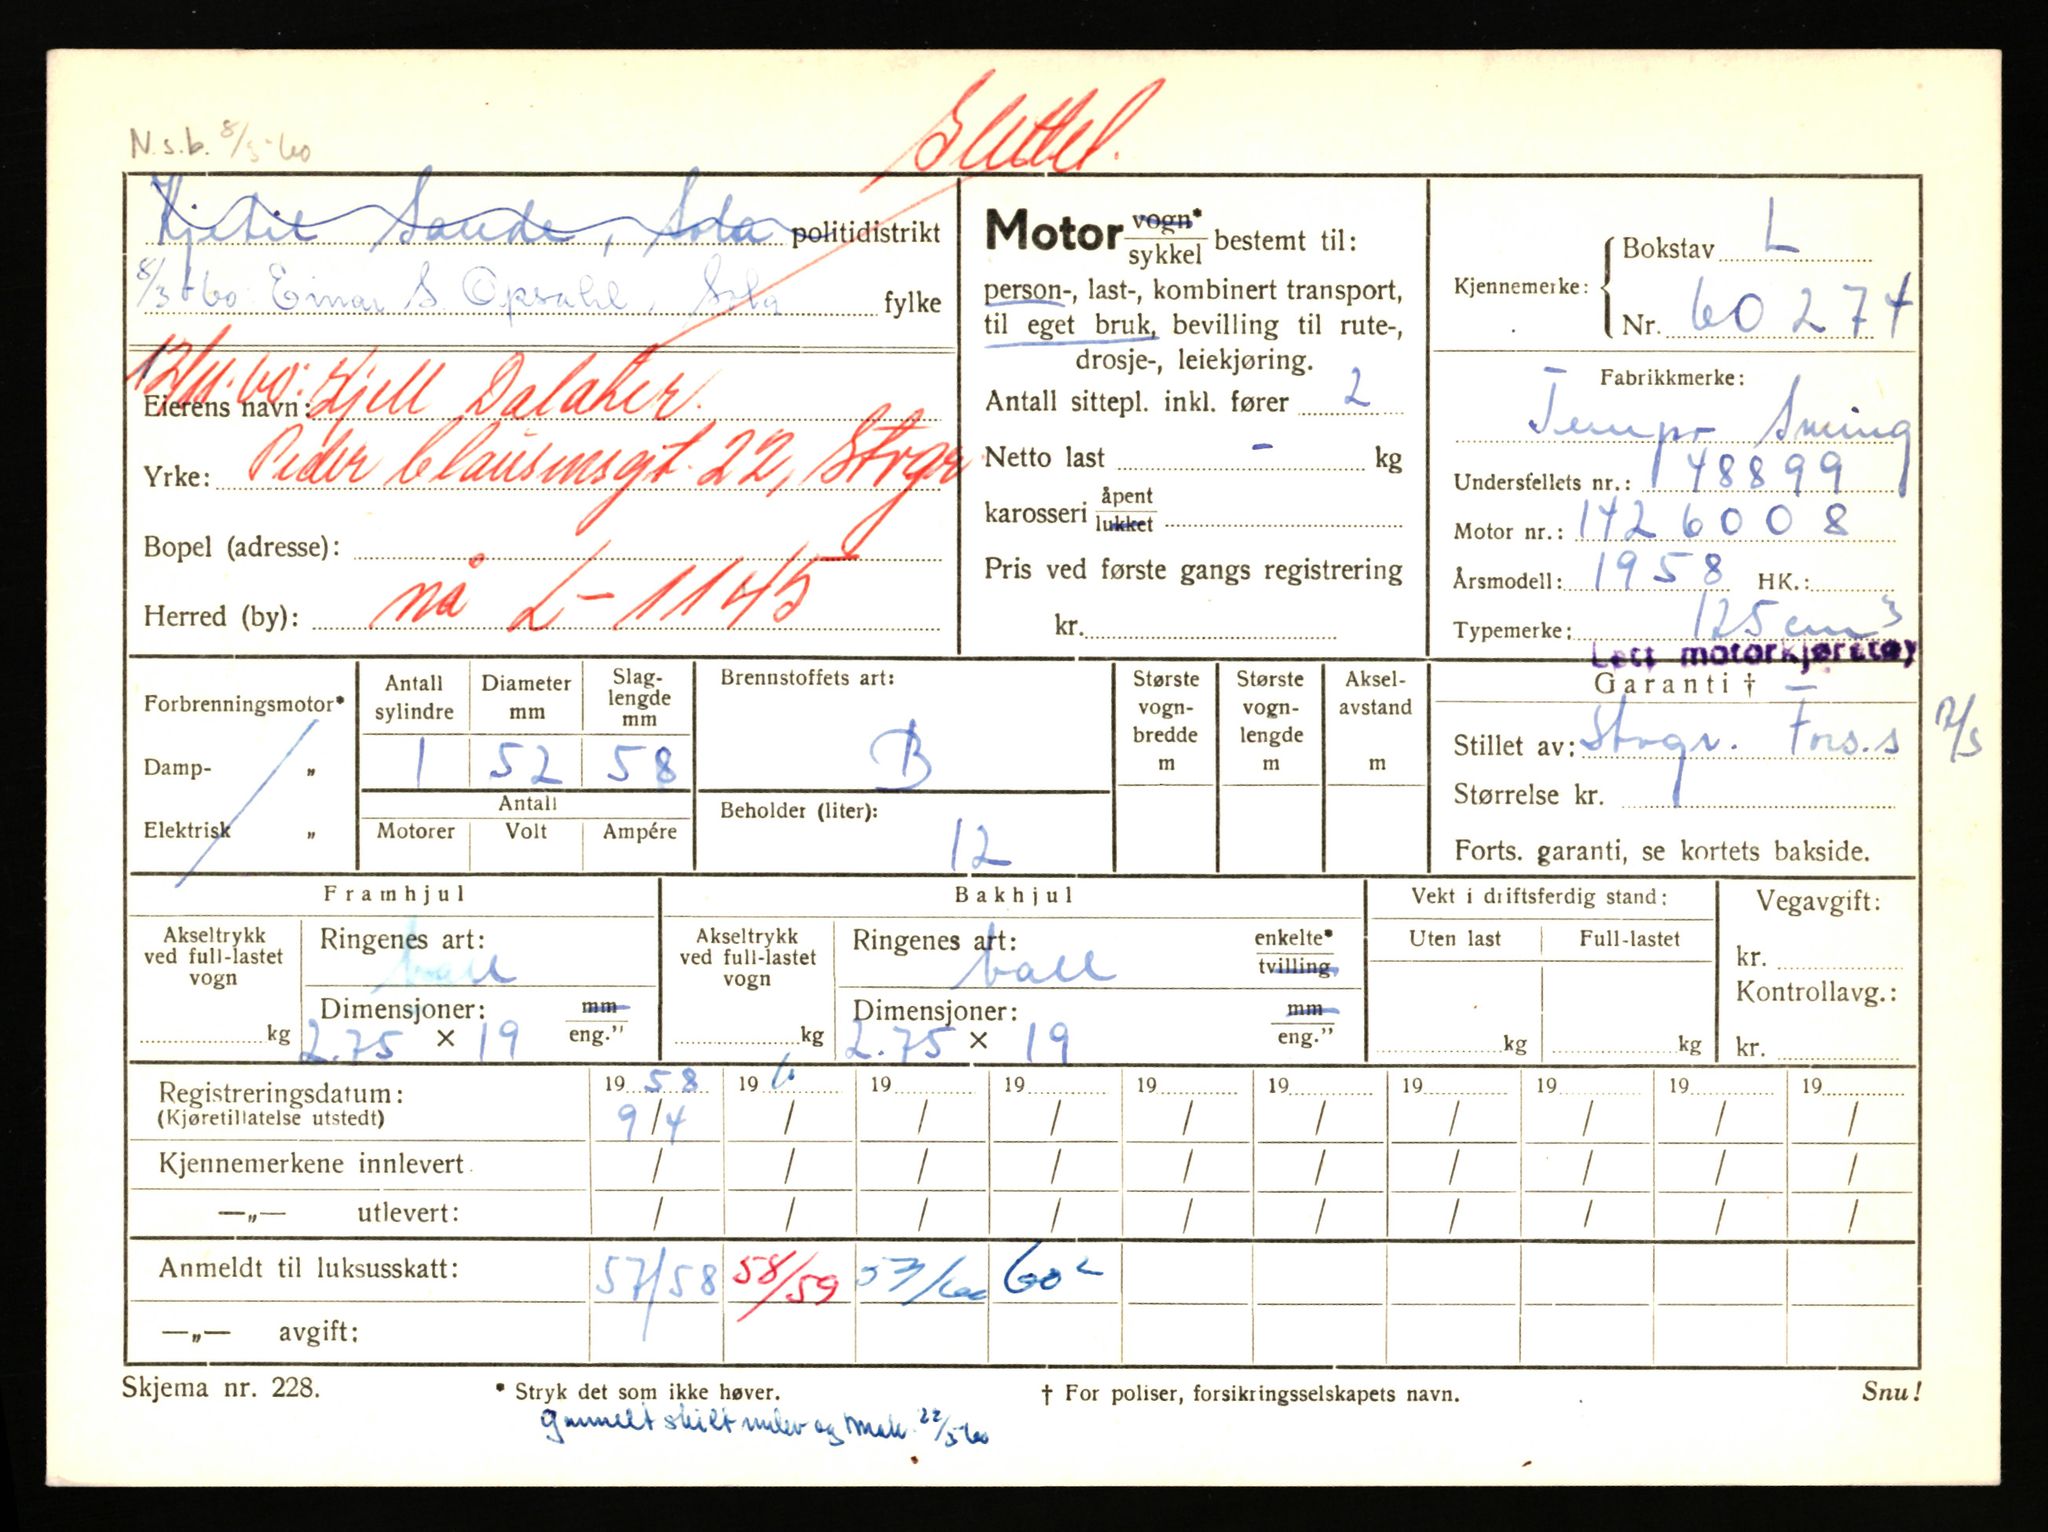 Slettet.
N.s.b. 8/3-60
Kjetil Sande, Sola politidistrikt
8/3-60: Einar S. Opsahl, Sola fylke
12/11.60: Kjell Dalaker.
Eierens navn:
Peder Claussensgt. 22, Stvgr
Yrke:
Bopel (adresse):
nå L-1145
Herred (by):
Motor vogn* / sykkel bestemt til:
person-, last-, kombinert transport,
til eget bruk, bevilling til rute-,
drosje-, leiekjøring.
Antall sittepl. inkl. fører 2
Netto last - kg
karosseri åpent / lukket
Pris ved første gangs registrering
kr.
Kjennemerke: Bokstav L
Nr. 60274
Fabrikkmerke:
Tempo Swing
Understellets nr.: 148899
Motor nr.: 1426008
Årsmodell: 1958 HK.:
Typemerke: 125 cm³
Lett motorkjøretøy
Garanti †
Stillet av: Stvgr. Fors.s
Størrelse kr.
Forts. garanti, se kortets bakside.
Forbrenningsmotor*
Damp- „
Elektrisk „
Antall sylindre 1
Diameter mm 52
Slaglengde mm 58
Antall
Motorer Volt Ampére
Brennstoffets art:
B
Beholder (liter):
12
Største vogn-bredde m
Største vogn-lengde m
Aksel-avstand m
Framhjul
Akseltrykk ved full-lastet vogn kg
Ringenes art: ball
Dimensjoner: mm / eng."
2.75 × 19
Bakhjul
Akseltrykk ved full-lastet vogn kg
Ringenes art: ball enkelte* / tvilling
Dimensjoner: mm / eng."
2.75 × 19
Vekt i driftsferdig stand:
Uten last Full-lastet
kg kg
Vegavgift:
kr.
Kontrollavg.:
kr.
Registreringsdatum: 1958 196 19 19 19 19 19 19 19 19
(Kjøretillatelse utstedt) 9/4 / / / / / / / / /
Kjennemerkene innlevert / / / / / / / / / /
—„— utlevert: / / / / / / / / / /
Anmeldt til luksusskatt: 57/58 58/59 53/60 60
—„— avgift:
Skjema nr. 228. * Stryk det som ikke høver. † For poliser, forsikringsselskapets navn. Snu!
Gammelt skilt innlev og mak. 22/3-60